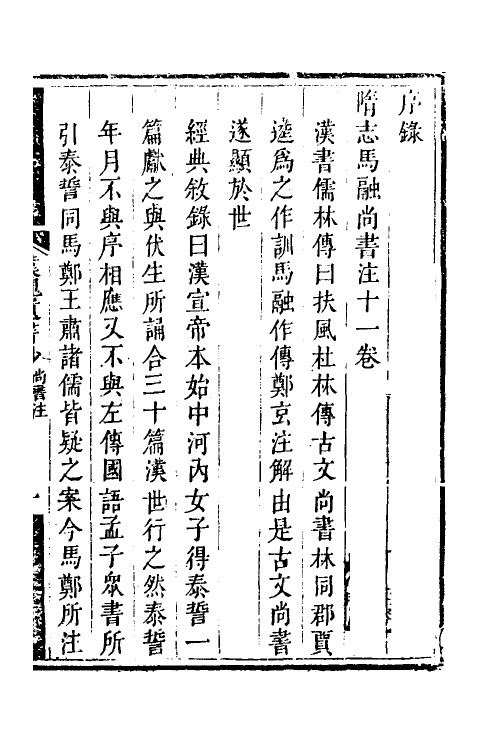 序錄
隋志馬融尚書注十一卷
漢書儒林傳曰扶風杜林傳古文尚書林同郡賈
逵爲之作訓馬融作傳鄭玄注解由是古文尚書
遂顯於世
經典敘錄曰漢宣帝本始中河內女子得泰誓一
篇獻之與伏生所誦合三十篇漢世行之然泰誓
年月不與序相應又不與左傳國語孟子眾書所
引泰誓同馬鄭王肅諸儒皆疑之案今馬鄭所注
尚書注
一